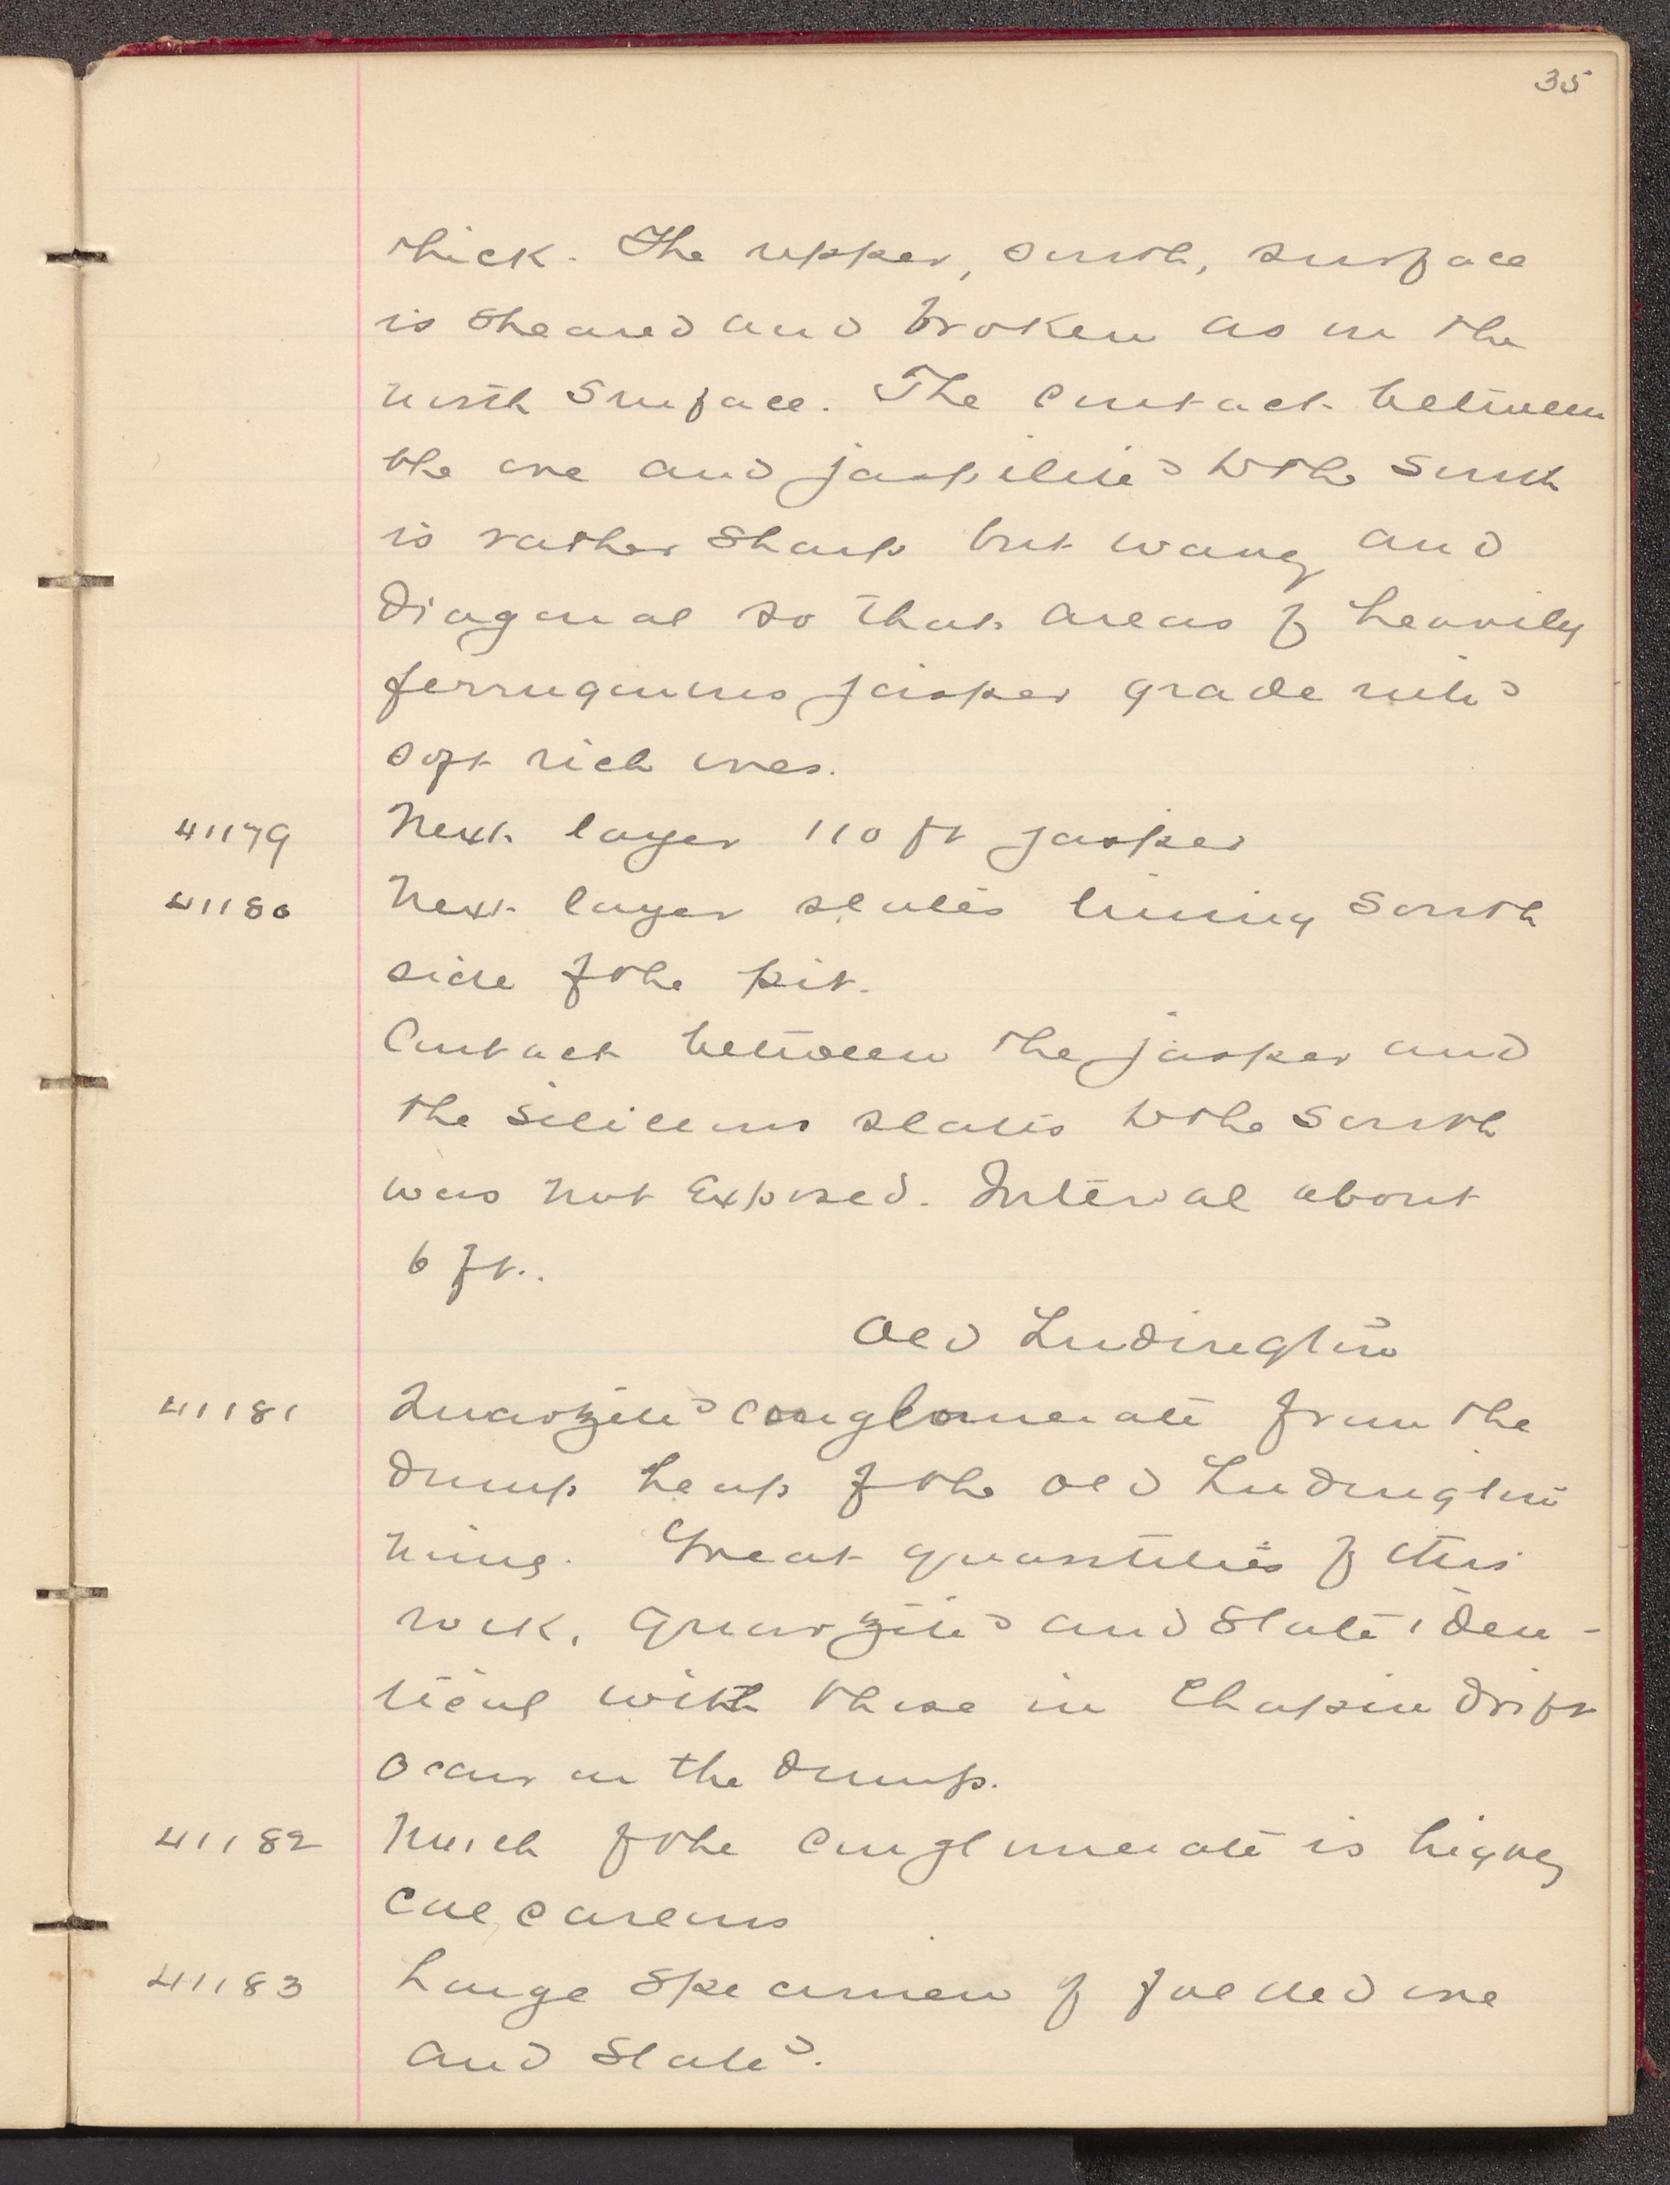 35
thick. The upper, south, surface
is sheared and broken as in the
north surface. The contact between
the ore and jaspilite to the south
is rather sharp but wavy and
diagonal so that areas of heavily
ferruginous jasper grade into
soft rich ores.
41179 Next layer 110 ft jasper
41180 Next layer slates lining south
side of the pit.
Contact between the jasper and
the silicious slates to the south
was not exposed. Interval about
6 ft..
Old Ludington
41181 Quartzite conglomerate from the
dump heap of the old Ludington
mine. Great quantities of this
rock, quartzite and slate iden-
tical with those in Chapin drift
occur on the dump.
41182 Much of the conglomerate is highly
calcareous
41183 Large specimen of folded ore
and slate.